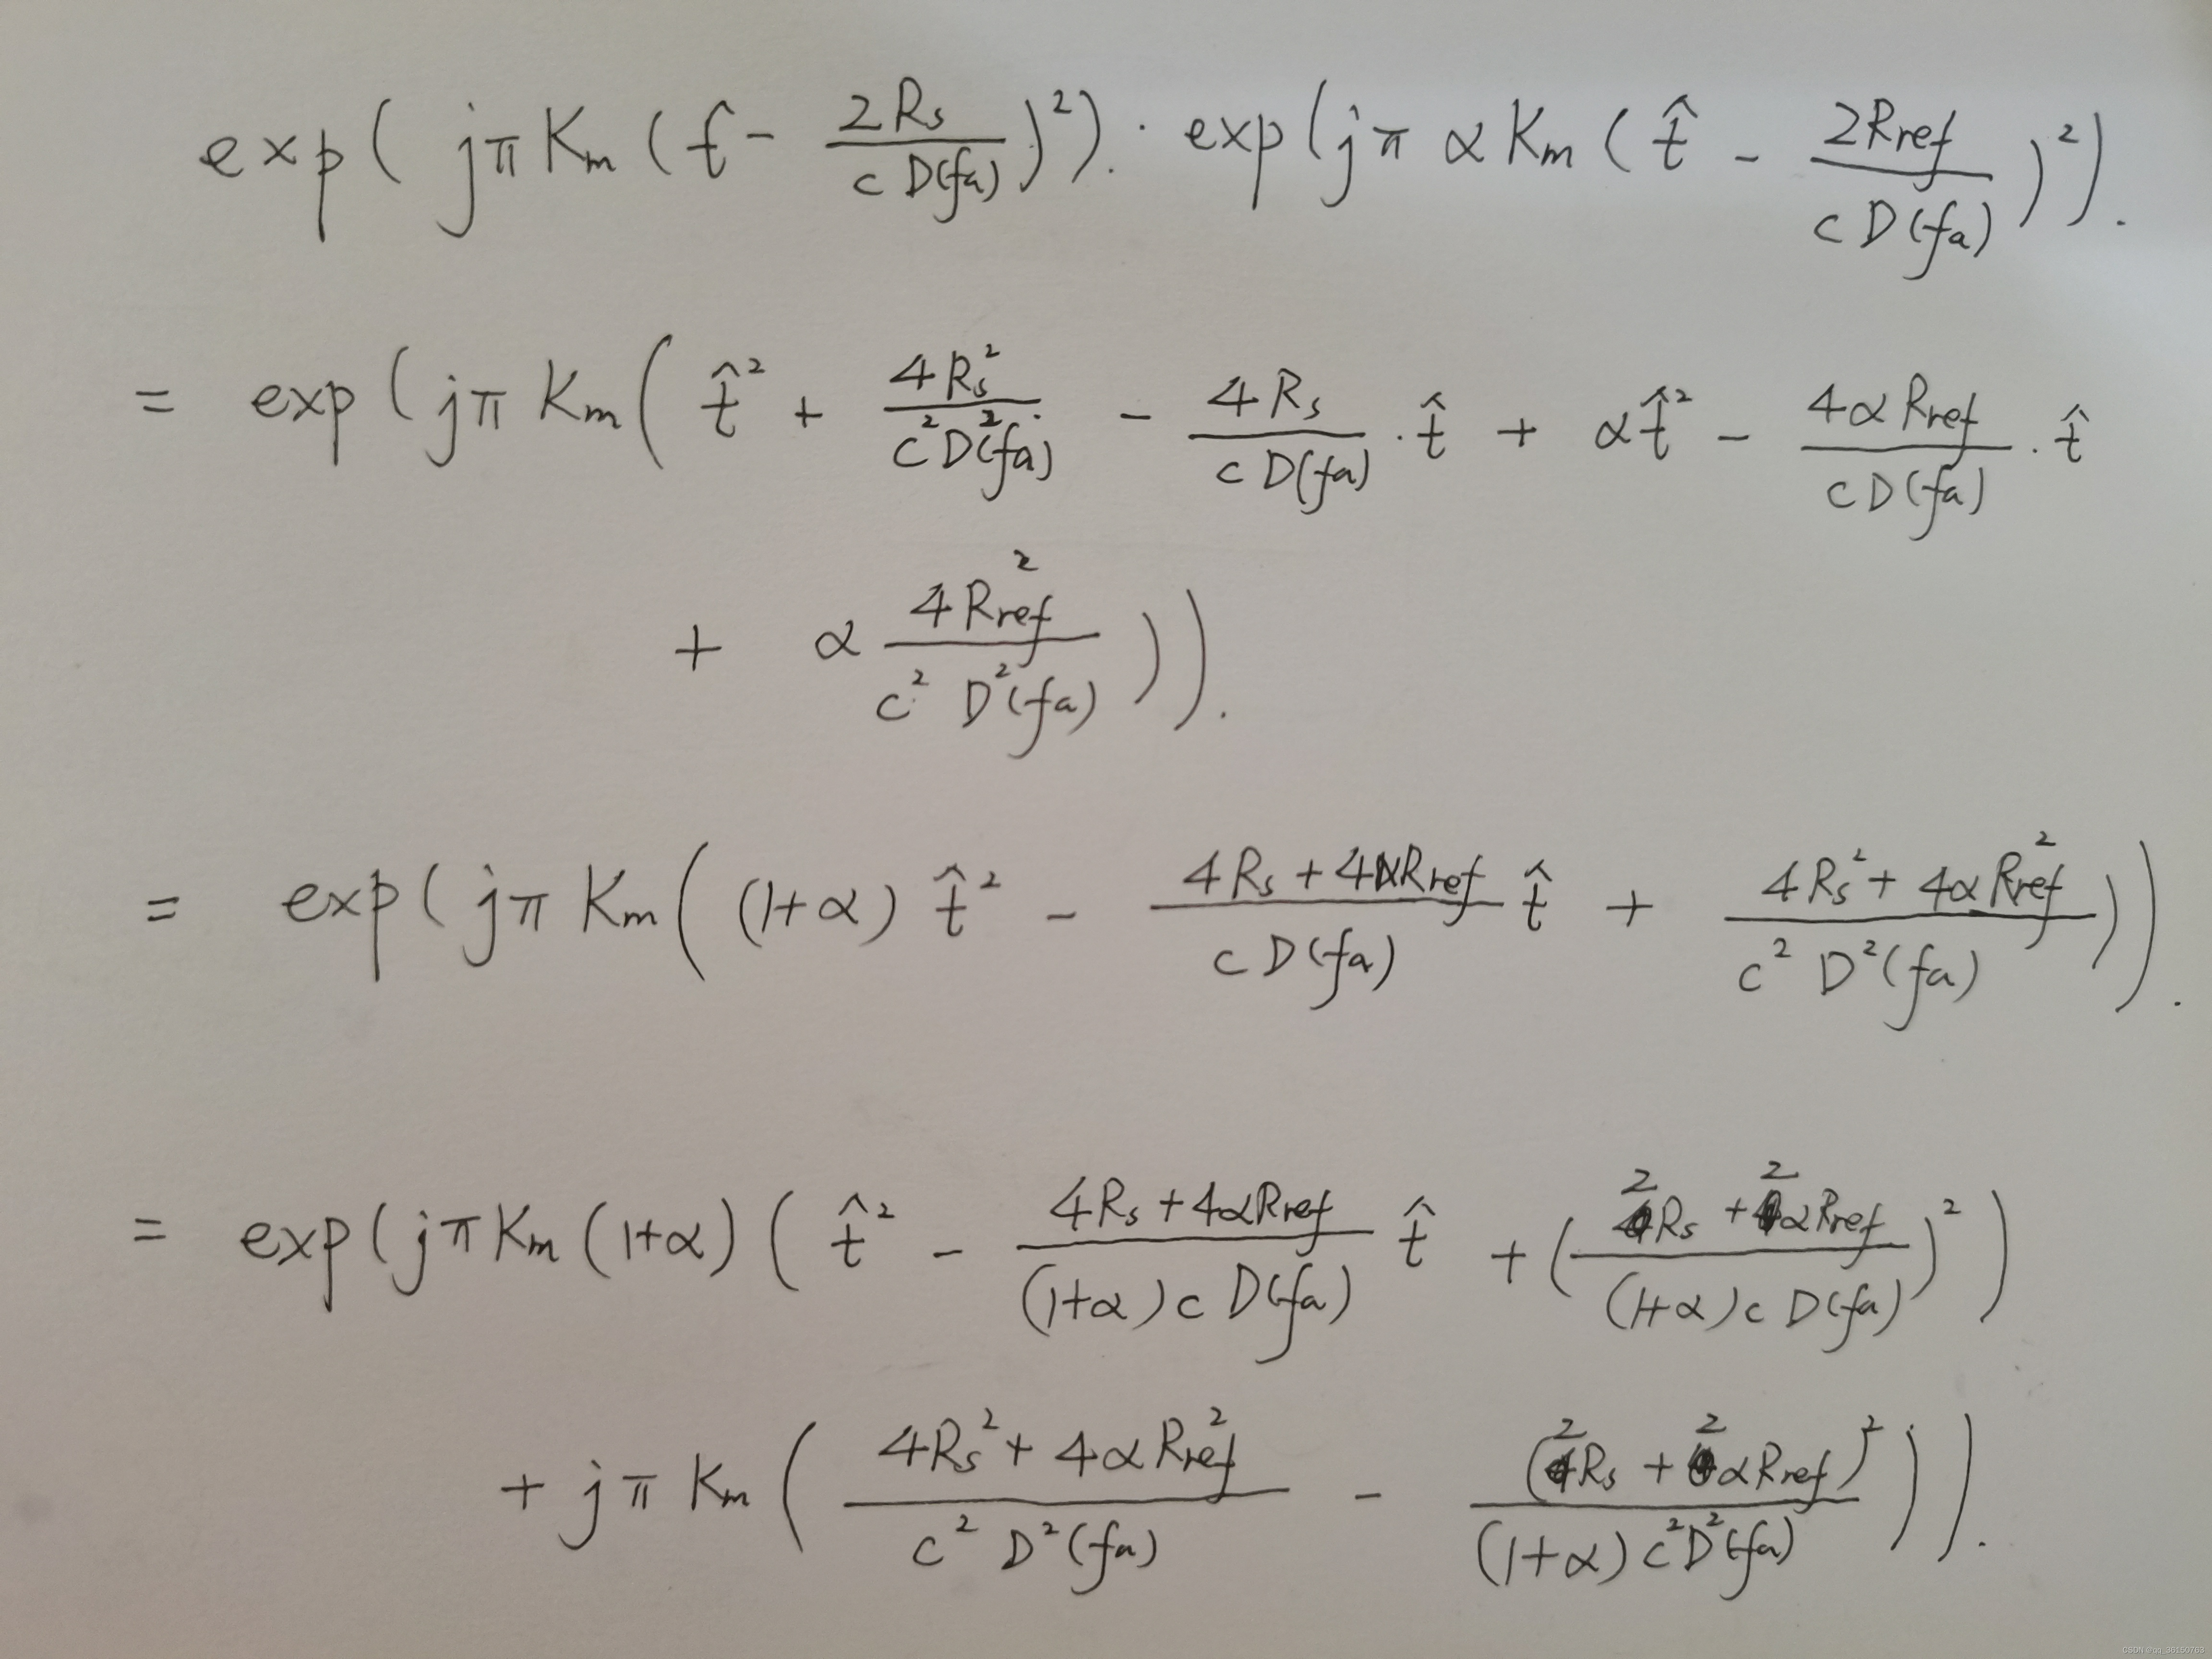 exp( jπ K_m ( t̂ - \frac{2R_s}{c D(f_a)} )^2 ) · exp( jπ α K_m ( t̂ - \frac{2R_{ref}}{c D(f_a)} )^2 ).
= exp( jπ K_m ( t̂^2 + \frac{4R_s^2}{c^2 D^2(f_a)} - \frac{4R_s}{c D(f_a)} · t̂ + α t̂^2 - \frac{4αR_{ref}}{c D(f_a)} · t̂
+ α \frac{4R_{ref}^2}{c^2 D^2(f_a)} ) ).
= exp( jπ K_m ( (1+α) t̂^2 - \frac{4R_s + 4αR_{ref}}{c D(f_a)} t̂ + \frac{4R_s^2 + 4αR_{ref}^2}{c^2 D^2(f_a)} ) ).
= exp( jπ K_m (1+α) ( t̂^2 - \frac{4R_s + 4αR_{ref}}{(1+α) c D(f_a)} t̂ + ( \frac{2R_s + 2αR_{ref}}{(1+α) c D(f_a)} )^2 )
+ jπ K_m ( \frac{4R_s^2 + 4αR_{ref}^2}{c^2 D^2(f_a)} - \frac{(2R_s + 2αR_{ref})^2}{(1+α) c^2 D^2(f_a)} ) ).
CSDN @qq_36150763